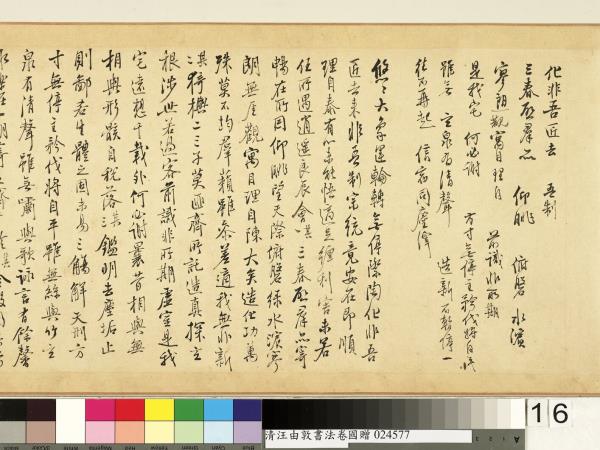 化非吾匠去 吾制
三春啟群品 仰眺 俯磬 水濱
寥朗觀寓目理自
前識非所期
是我宅 何必謝
方寸無停主矜伐將自平
雖無 泉有清聲 造新不暫停一
往不再起 信宿同塵滓
悠悠大象運輪轉無停際陶化非吾
匠去來非吾制宗統竟安在即順
理自泰有心未能悟適足纏利害未若
任所遇逍遙良辰會其一三春啟群品寄
暢在所因仰眺望天際俯磬綠水濱寥
朗無厓觀寓目理自陳大矣造化功萬
殊莫不均群籟雖參差適我無非新
其二猗與二三子莫匪齊所託造真探玄
根涉世若過客前識非所期虛室是我
宅遠想千載外何必謝曩昔相與無
相與形骸自脫落其三鑑明去塵垢止
則鄙吝生體之固未易三觴解天刑方
寸無停主矜伐將自平雖無絲與竹玄
泉有清聲雖無嘯與歌詠言有餘馨
16
清汪由敦書法卷國贈 024577